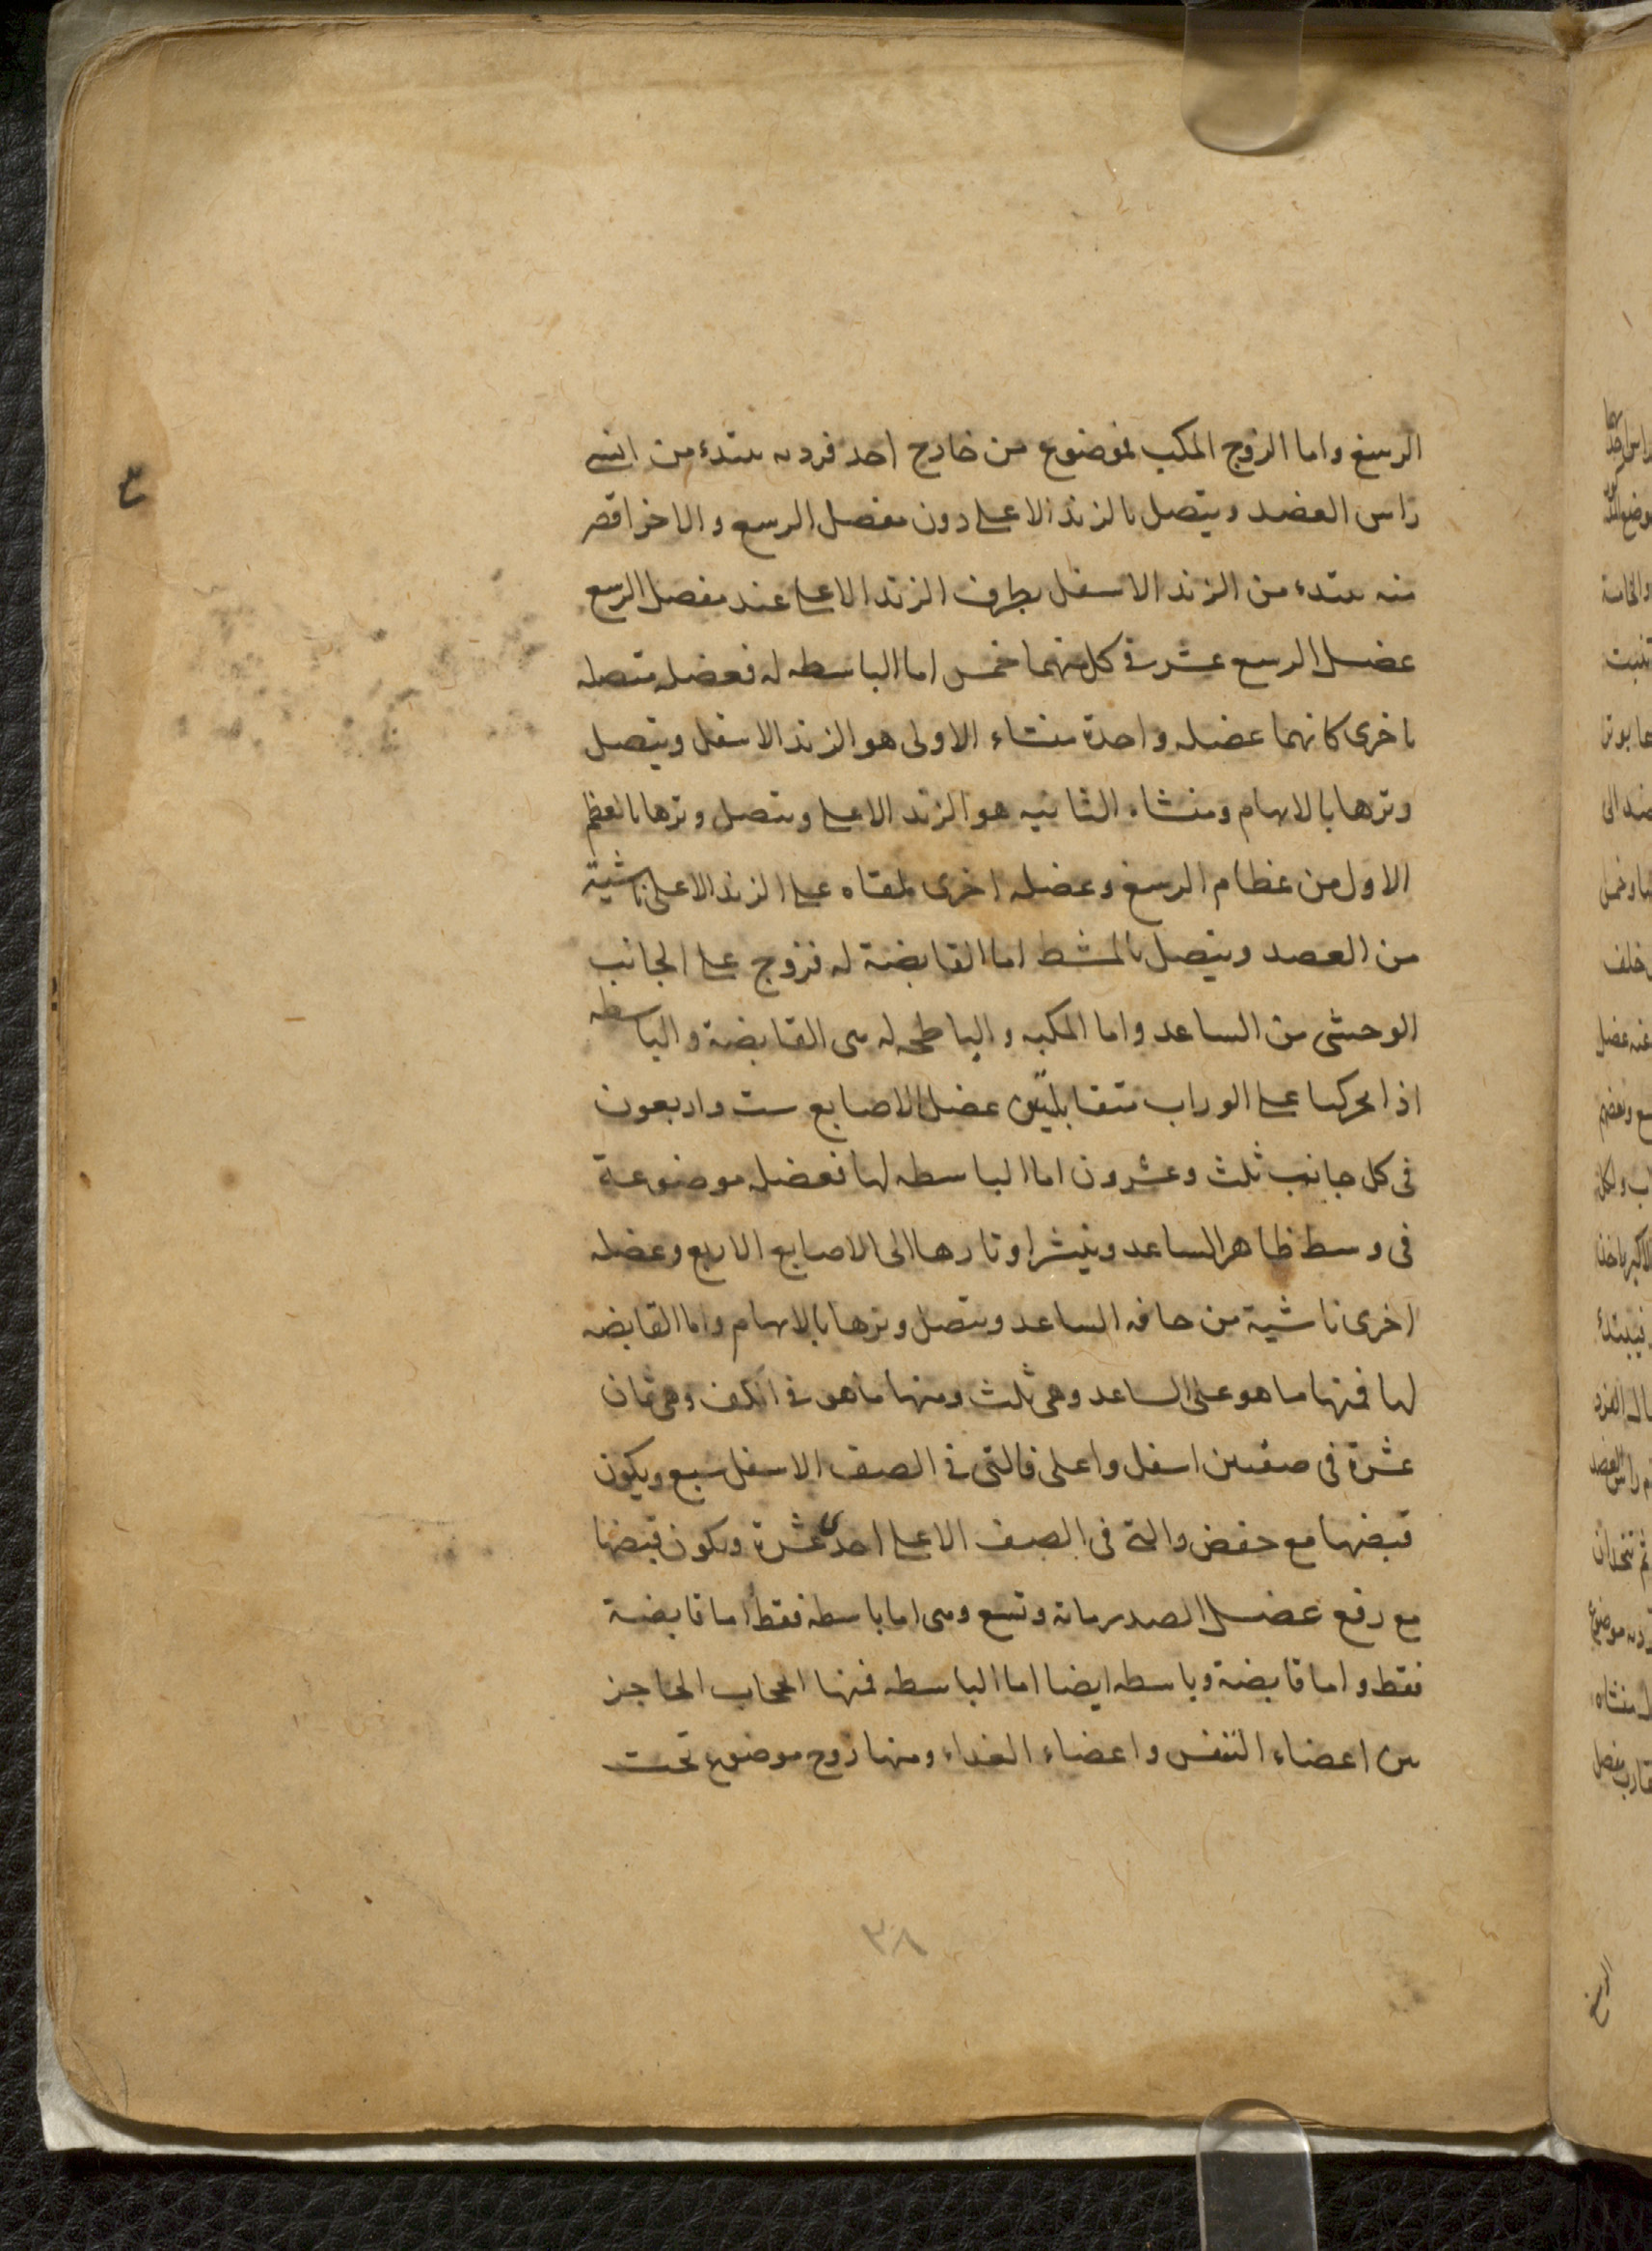 الرسغ واما الزوج المكب فموضوع من خارج احد فرديه يبتدء من انسى
راس العضد ويتصل بالزند الاعلى دون مفصل الرسغ والاخر اقصر
منه يبتدء من الزند الاسفل بطرف الزند الاعلى عند مفصل الرسغ
عضل الرسغ عشر فى كل منهما خمس اما الباسطه له فعضله متصله
باخرى كانهما عضله واحدة منشاء الاولى هو الزند الاسفل ويتصل
وترها بالابهام ومنشاء الثانيه هو الزند الاعلى ويتصل وترها بالعظم
الاول من عظام الرسغ وعضله اخرى ملقاه على الزند الاعلى ناشية
من العضد ويتصل بالمشط اما القابضة له فزوج على الجانب
الوحشى من الساعد واما المكبه والباطحه له هى القابضة والباسطه
اذا تحركتا على الوراب متقابلتين عضل الاصابع ست واربعون
فى كل جانب ثلث وعشرون اما الباسطه لها فعضله موضوعة
فى وسط ظاهر الساعد وينشر اوتارها الى الاصابع الاربع وعضله
اخرى ناشية من حافه الساعد ويتصل وترها بالابهام واما القابضه
لها فمنها ما هو على الساعد وهى ثلث ومنها ما هو فى الكف وهى ثمان
عشرة فى صفين اسفل واعلى فالتى فى الصف الاسفل سبع ويكون
قبضها مع خفض والتى فى الصف الاعلى احدى عشرة ويكون قبضها
مع رفع عضل الصدر مائة وتسع وهى اما باسطه فقط اما قابضة
فقط واما قابضة وباسطه ايضا اما الباسطه فمنها الحجاب الحاجز
بين اعضاء التنفس واعضاء الغداء ومنها زوج موضوع تحت
٣٨